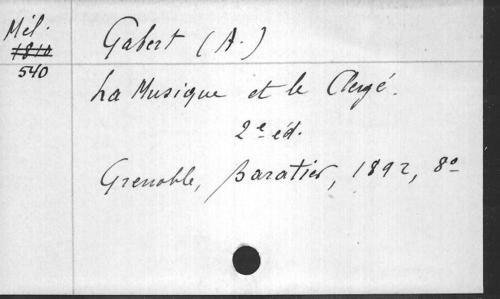 Mél.
1810
540
Gabert (A.)
La Musique et le Clergé.
2e éd.
Grenoble, Baratier, 1892, 8º